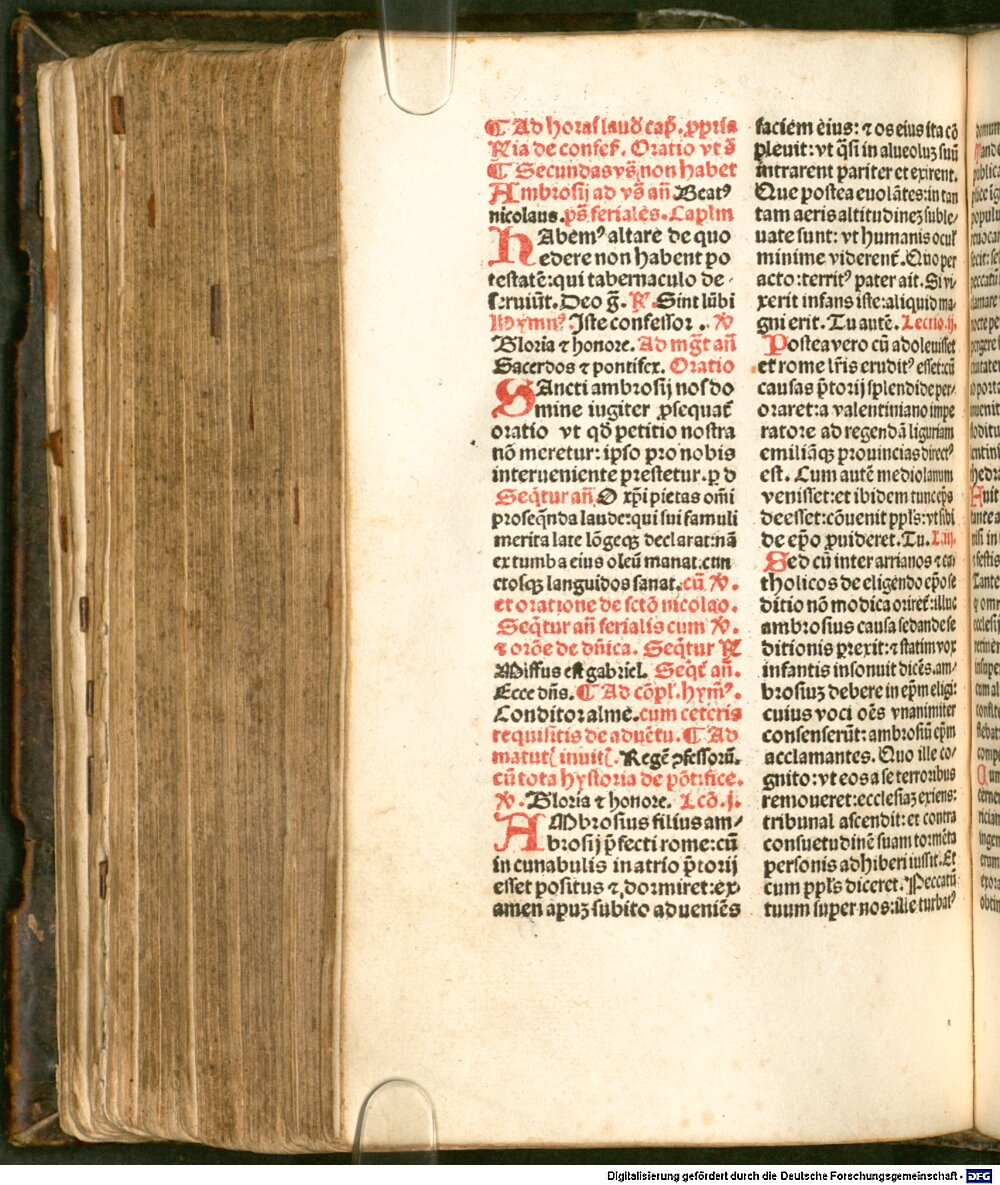 ¶ Ad horas laud̄ cap̄. ꝓpria
Ria de conseſ. Oratio vt s̄
¶ Secundas vs̄ non habet
Ambrosij ad vs̄ an̄ Beatꝰ
nicolaus. ps̄ feriales. Caplm
HAbemꝰ altare de quo
edere non habent po
testatē: qui tabernaculo de-
seruiūt. Deo g̅. ℟. Sint lūbi
Hymnꝰ. Iste confessor. ℣
Gloria ⁊ honore. Ad mgt̄ an̄
Sacerdos ⁊ pontifex. Oratio
SAncti ambrosij nos do
mine iugiter ꝓsequat᷑
oratio vt qd̄ petitio nostra
nō meretur: ipso pro nobis
interueniente prestetur. ꝑ d
Seqt᷑ur an̄ O xp̄i pietas om̄i
proseq̄nda laude: qui sui famuli
merita late lōgeqꝫ declarat: nā
ex tumba eius oleū manat: cun
ctosqꝫ languidos sanat. cū ℣.
et oratione de sctō nicolao.
Seqt᷑ur an̄ ferialis cum ℣.
⁊ orōe de dn̄ica. Seqt᷑ur ℟
Missus est gabriel. Seqt᷑ an̄.
Ecce dn̄s. ¶ Ad cōpl. hymꝰ.
Conditor alme. cum ceteris
requisitis de aduētu. ¶ Ad
matut᷑ inuit᷑. Regē ꝯfessorū.
cū tota hystoria de pōtifice.
℣. Gloria ⁊ honore. Lcō. j.
AMbrosius filius am-
brosij p̄fecti rome: cū
in cunabulis in atrio p̄torij
esset positus ⁊ dormiret: ex-
amen apuꝫ subito adueniēs
faciem eius: ⁊ os eius ita cō
pleuit: vt q̄si in alueoluꝫ suū
intrarent pariter et exirent.
Que postea euolātes: in tan
tam aeris altitudineꝫ suble-
uate sunt: vt humanis ocul
minime viderent᷑. Quo per
acto: territꝰ pater ait. Si vi-
xerit infans iste: aliquid ma-
gni erit. Tu autē. Lectio .ij.
Postea vero cū adoleuisset
et rome lr̄is eruditꝰ esset: cū
causas p̄torij splendide per-
oraret: a valentiniano impe
ratore ad regendā liguriam
emiliāqꝫ prouincias directꝰ
est. Cum autē mediolanum
venisset: et ibidem tunc ep̄s
deesset: cōuenit ppl's: vt sibi
de ep̄o ꝓuideret. Tu. L. iij.
Sed cū inter arrianos ⁊ ca-
tholicos de eligendo ep̄o se
ditio nō modica oriret᷑: illuc
ambrosius causa sedande se
ditionis ꝑrexit: ⁊ statim vox
infantis insonuit dicēs. am-
brosiuꝫ debere in ep̄m eligi:
cuius voci oēs vnanimiter
consenserūt: ambrosiū ep̄m
acclamantes. Quo ille co-
gnito: vt eos a se terroribus
remoueret: ecclesiaꝫ exiens:
tribunal ascendit: et contra
consuetudinē suam tormēta
personis adhiberi iussit. Et
cum ppl's diceret. Peccatū
tuum super nos: ille turbatꝰ
Digitalisierung gefördert durch die Deutsche Forschungsgemeinschaft - DFG